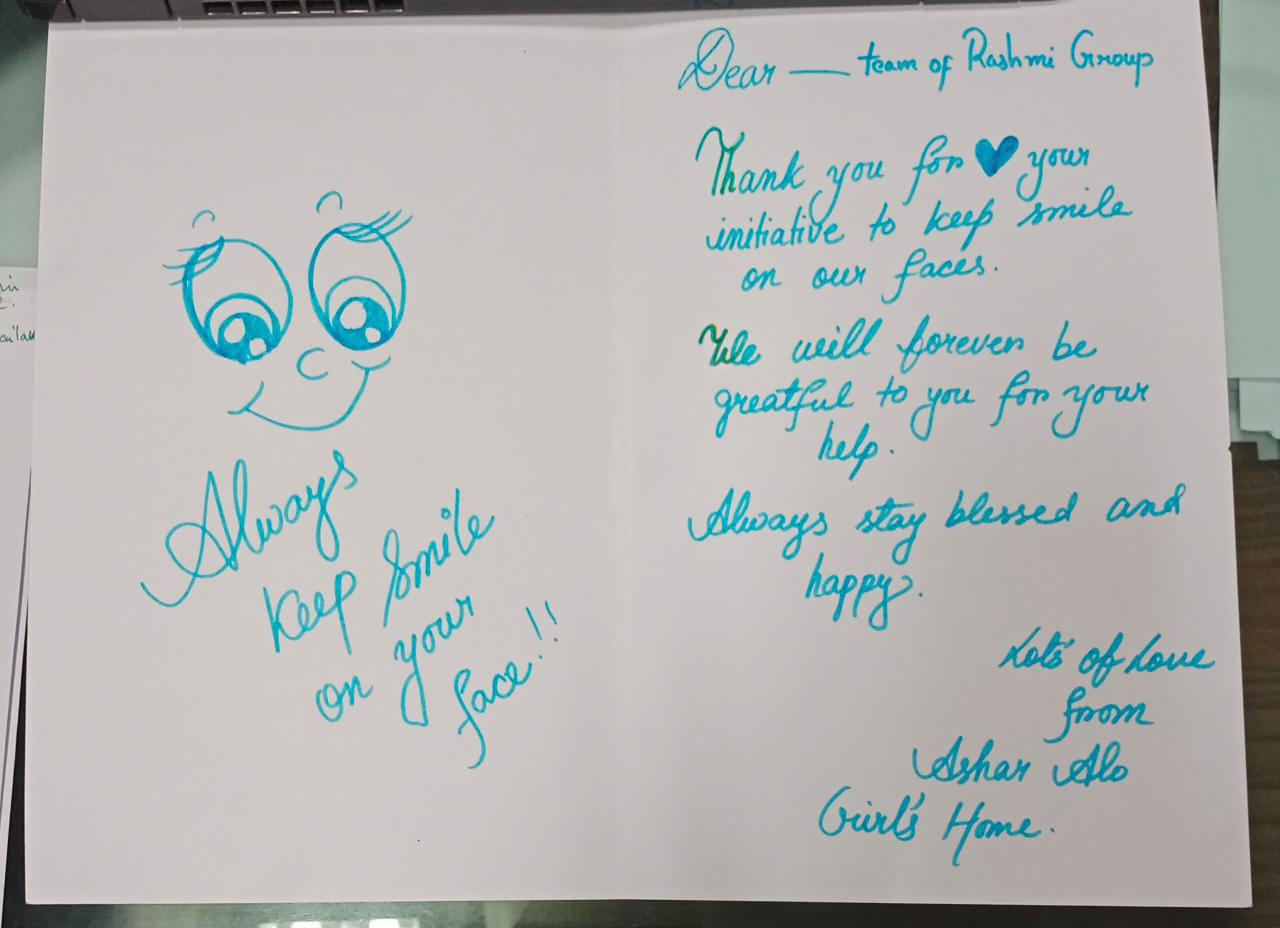 Always
keep smile
on your
face!!
Dear — team of Rashmi Group
Thank you for ♥ your
initiative to keep smile
on our faces.
We will forever be
greatful to you for your
help.
Always stay blessed and
happy.
Lots' of Love
from
Ashar Alo
Girl's Home.